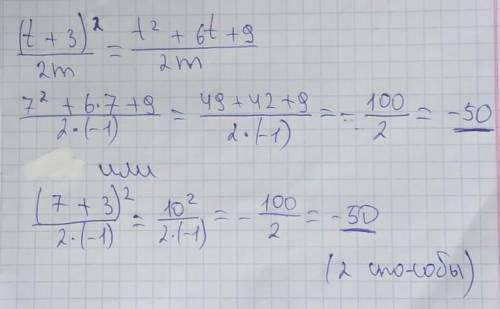 (t + 3)² / 2m = t² + 6t + 9 / 2m
7² + 6·7 + 9 / 2·(-1) = 49 + 42 + 9 / 2·(-1) = - 100 / 2 = -50
или
(7 + 3)² / 2·(-1) = 10² / 2·(-1) = - 100 / 2 = -50
(2 способы)